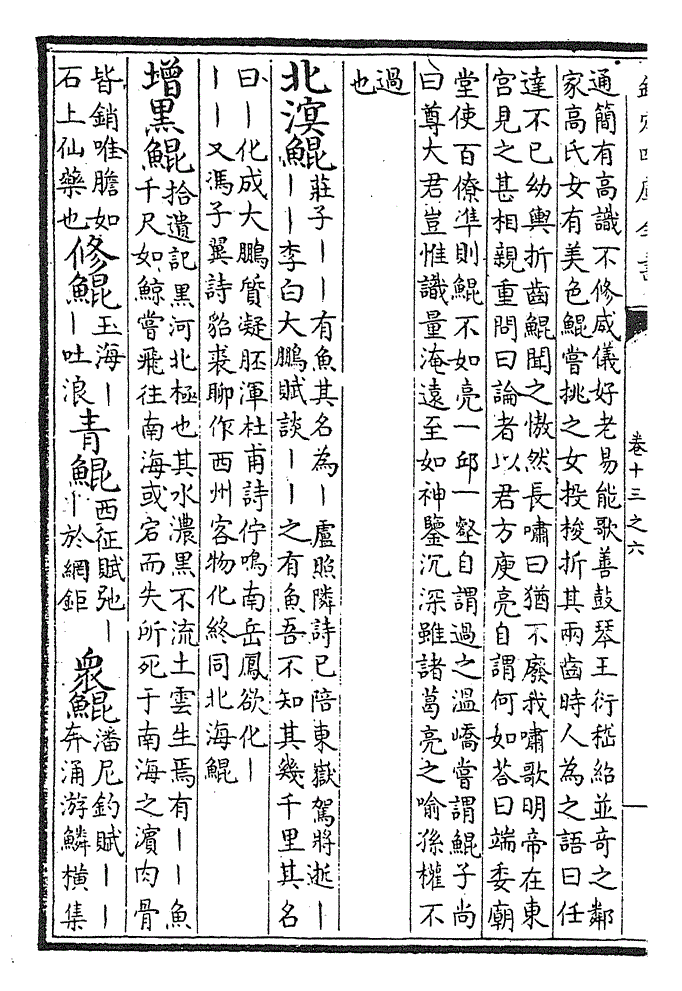 欽定四庫全書
卷十三之六
通簡有高識不修威儀好老易能歌善鼓琴王衍嵇紹並奇之鄰
家高氏女有美色鯤嘗挑之女投梭折其兩齒時人為之語曰任
達不已幼輿折齒鯤聞之慠然長嘯曰猶不廢我嘯歌明帝在東
宮見之甚相親重問曰論者以君方庾亮自謂何如荅曰端委廟
堂使百僚準則鯤不如亮一邱一壑自謂過之溫嶠嘗謂鯤子尚
曰尊大君豈惟識量淹遠至如神鑒沉深雖諸葛亮之喻孫權不
過
也
北溟鯤
莊子丨丨有魚其名為丨盧照隣詩已陪東嶽駕將逝丨
丨丨李白大鵬賦談丨丨之有魚吾不知其幾千里其名
曰丨化成大鵬質凝胚渾杜甫詩佇鳴南岳鳳欲化丨
丨丨又馮子翼詩貂裘聊作西州客物化終同北海鯤
增黑鯤
拾遺記黑河北極也其水濃黑不流土雲生焉有丨丨魚
千尺如鯨嘗飛往南海或宕而失所死于南海之濱肉骨
皆銷唯膽如
石上仙藥也
修鯤
玉海丨
丨吐浪
青鯤
西征賦弛丨
丨於網鉅
衆鯤
潘尼釣賦丨丨
奔涌游鱗橫集